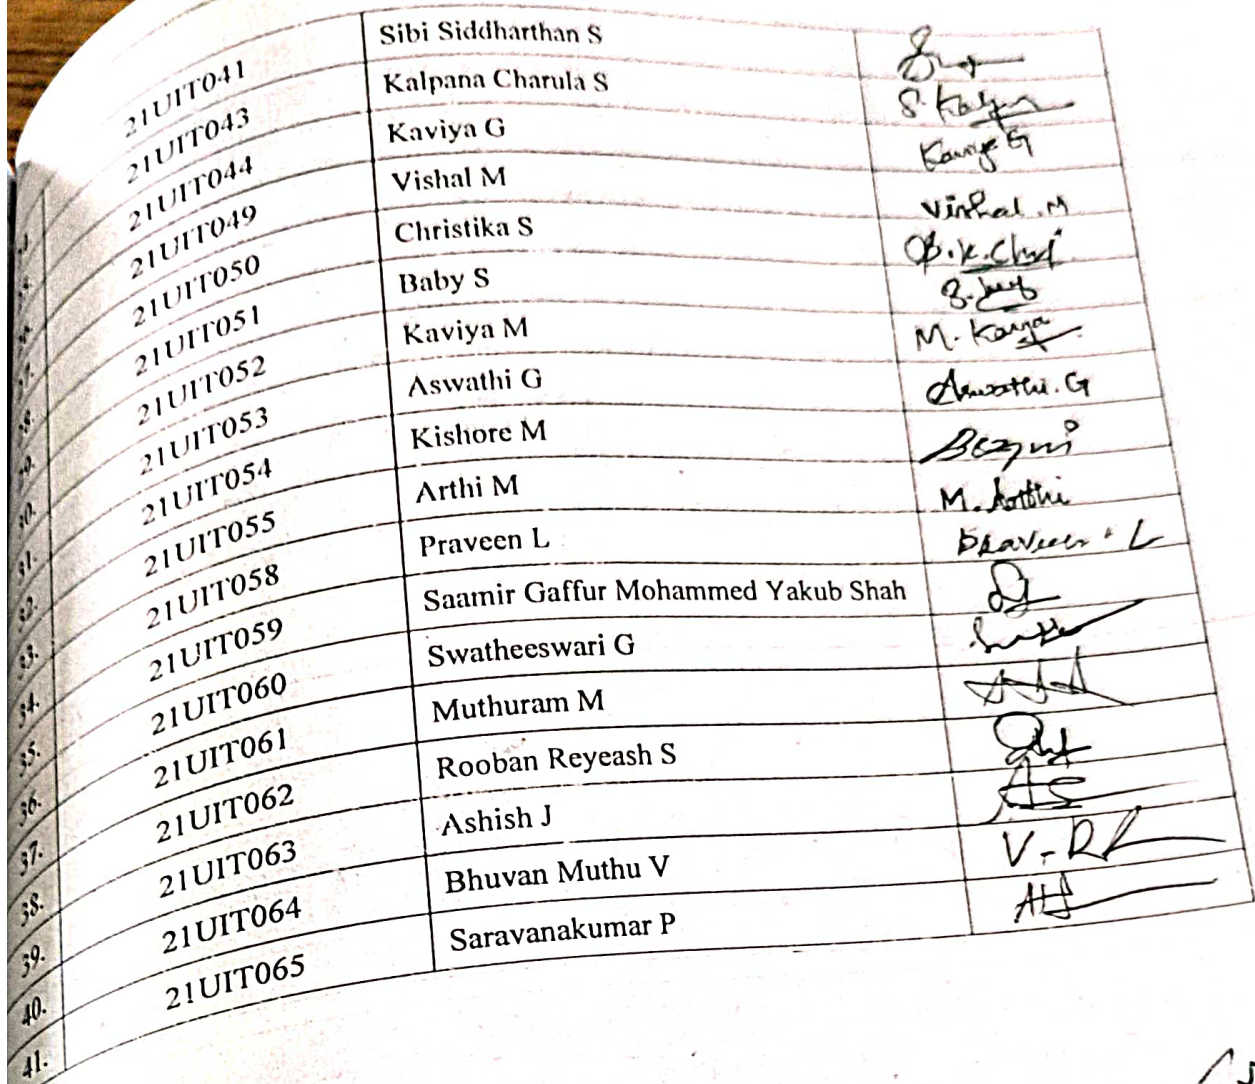 21UIT041 Sibi Siddharthan S
21UIT043 Kalpana Charula S
21UIT044 Kaviya G Kaviya G
27. 21UIT049 Vishal M Vishal .M
28. 21UIT050 Christika S
29. 21UIT051 Baby S
30. 21UIT052 Kaviya M M. Kaviya
31. 21UIT053 Aswathi G Aswathi. G
32. 21UIT054 Kishore M
33. 21UIT055 Arthi M M. Arthi
34. 21UIT058 Praveen L Praveen . L
35. 21UIT059 Saamir Gaffur Mohammed Yakub Shah
36. 21UIT060 Swatheeswari G
37. 21UIT061 Muthuram M
38. 21UIT062 Rooban Reyeash S
39. 21UIT063 Ashish J
40. 21UIT064 Bhuvan Muthu V
41. 21UIT065 Saravanakumar P